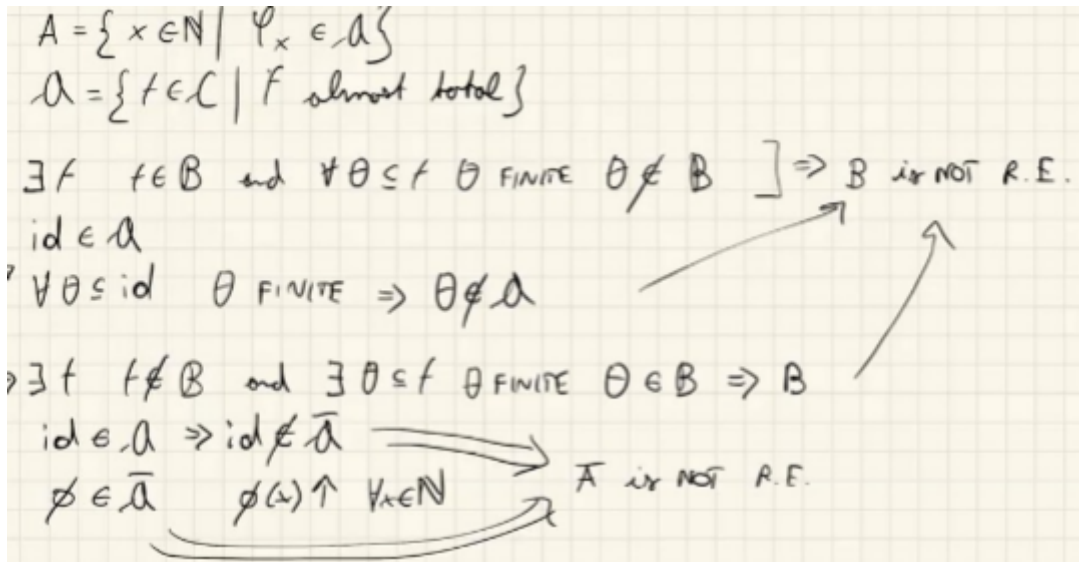 A = { x ∈ ℕ | φₓ ∈ 𝒜 }
𝒜 = { f ∈ C | f almost total }
∃ f f ∈ B and ∀ θ ⊆ f θ FINITE θ ∉ B ] ⇒ B is NOT R.E.
id ∈ 𝒜
∀ θ ⊆ id θ FINITE ⇒ θ ∉ 𝒜
∃ f f ∉ B and ∃ θ ⊆ f θ FINITE θ ∈ B ⇒ B
id ∈ 𝒜 ⇒ id ∉ 𝒜̅
Ā is NOT R.E.
∅ ∈ 𝒜̅ ∅(x)↑ ∀x∈ℕ